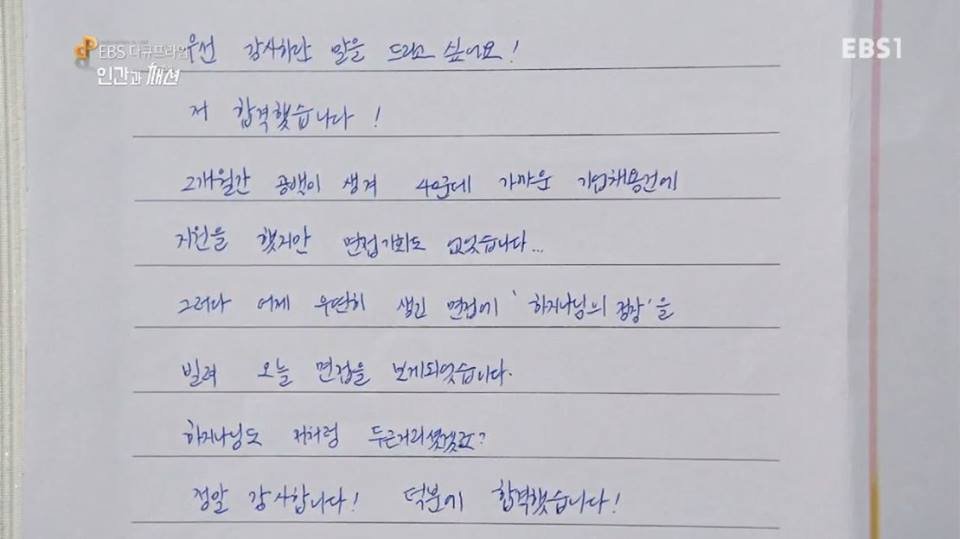 EBS 다큐프라임
인간과 패션
EBS1
우선 감사하단 말을 드리고 싶어요!
저 합격했습니다!
2개월간 공백이 생겨 40군데 가까운 기업채용건에
지원을 했지만 면접기회도 없었습니다...
그러다 어제 우연히 생긴 면접에 '하지나님의 정장'을
빌려 오늘 면접을 보게되었습니다.
하지나님도 저처럼 두근거리셨겠죠?
정말 감사합니다! 덕분에 합격했습니다!